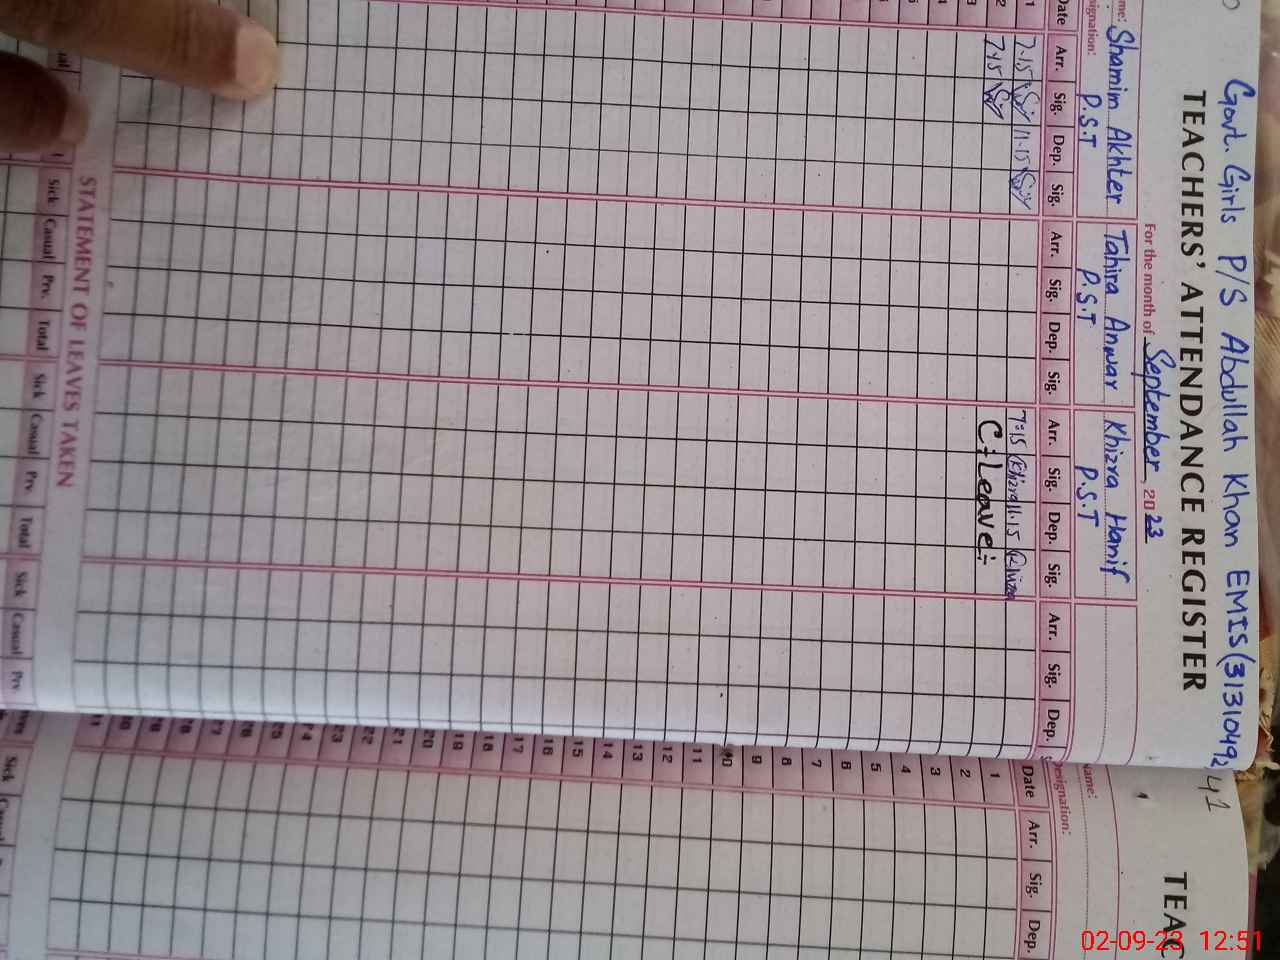 Govt. Girls P/S Abdullah Khan EMIS (31310492
TEACHERS' ATTENDANCE REGISTER
For the month of September, 2023
me: Shamim Akhter Tahira Anwar Khizra Hanif
signation: P.S.T P.S.T P.S.T
Date Arr. Sig. Dep. Sig. Arr. Sig. Dep. Sig. Arr. Sig. Dep. Sig. Arr. Sig. Dep.
1 7.15 11.15 7:15 Khizra 11.15 Khizra
2 7.15 C÷Leave÷
3
4
STATEMENT OF LEAVES TAKEN
Sick Casual Prv. Total Sick Casual Prv. Total Sick Casual Prv.
41
TEAC
Name:
Designation:
Date Arr. Sig. Dep.
1
2
3
4
5
6
7
8
9
10
11
12
13
14
15
16
17
18
19
20
21
22
23
24
25
26
27
28
29
30
31
Sick
02-09-23 12:51